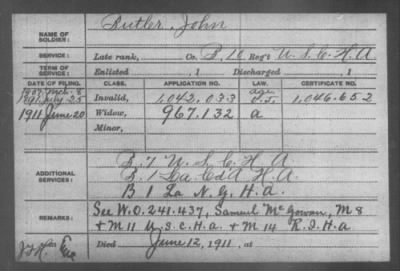 Butler, John
NAME OF SOLDIER:
SERVICE: Late rank, Co. B, 10 Reg't U. S. C. H. A.
TERM OF SERVICE: Enlisted , 1 Discharged , 1
DATE OF FILING. CLASS. APPLICATION NO. LAW. CERTIFICATE NO.
1907 Mch. 8 age
1891 July 25 Invalid, 1,042,033 1,046.652
1911 June 20 Widow, 967.132 a
Minor,
B. 1 U. S. C. H. A
ADDITIONAL SERVICES: B. 1 La. Cd A H. A.
B 1 La N. G. H. a.
REMARKS: See W.O. 241.437, Samuel McGowan, M 8
+ M 11 U.S.C.H.a. + M 14 R.I.H.a
Died June 12, 1911, at